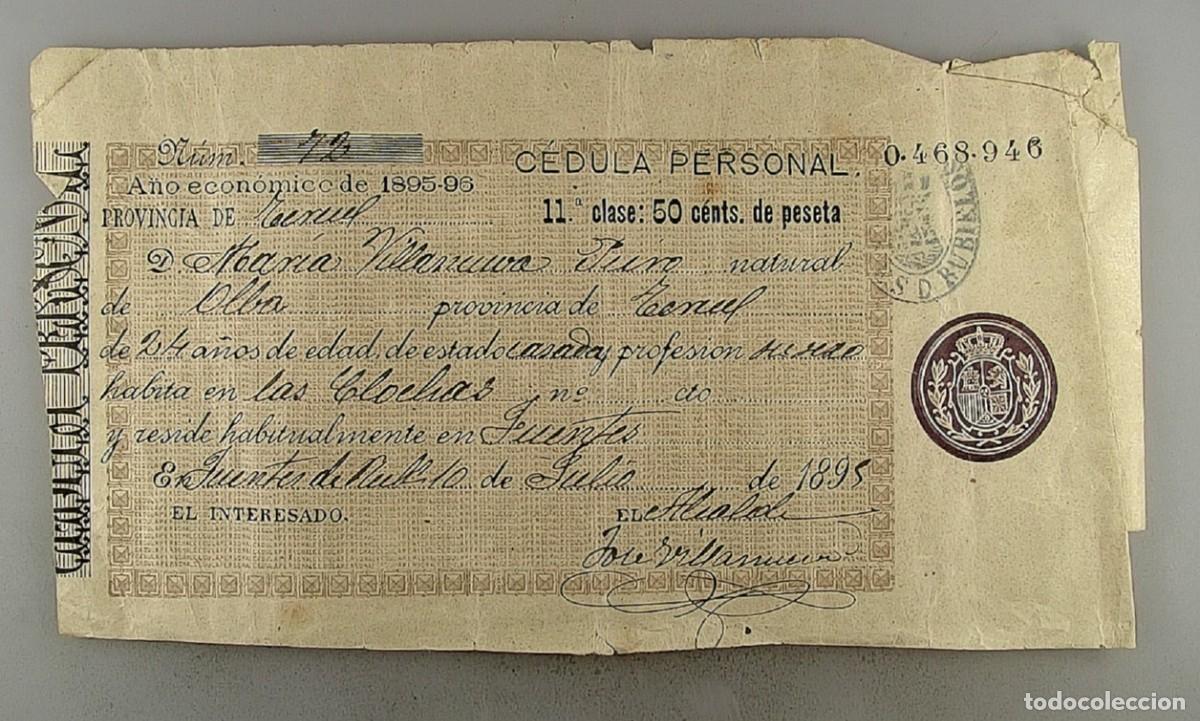 Núm. 72
CÉDULA PERSONAL.
0.468.946
Año económico de 1895-96
PROVINCIA DE Teruel
11.ª clase: 50 cénts. de peseta
D. María Villanueva natural
de Olba provincia de Teruel
de 24 años de edad, de estado casada y profesión su sexo
habita en las Clochas nº cto
y reside habitualmente en Fuentes
En Fuentes de Rub. 10 de Julio de 1895
EL INTERESADO.
EL Alcalde
José Villanueva
S D RUBIELOS
todocoleccion